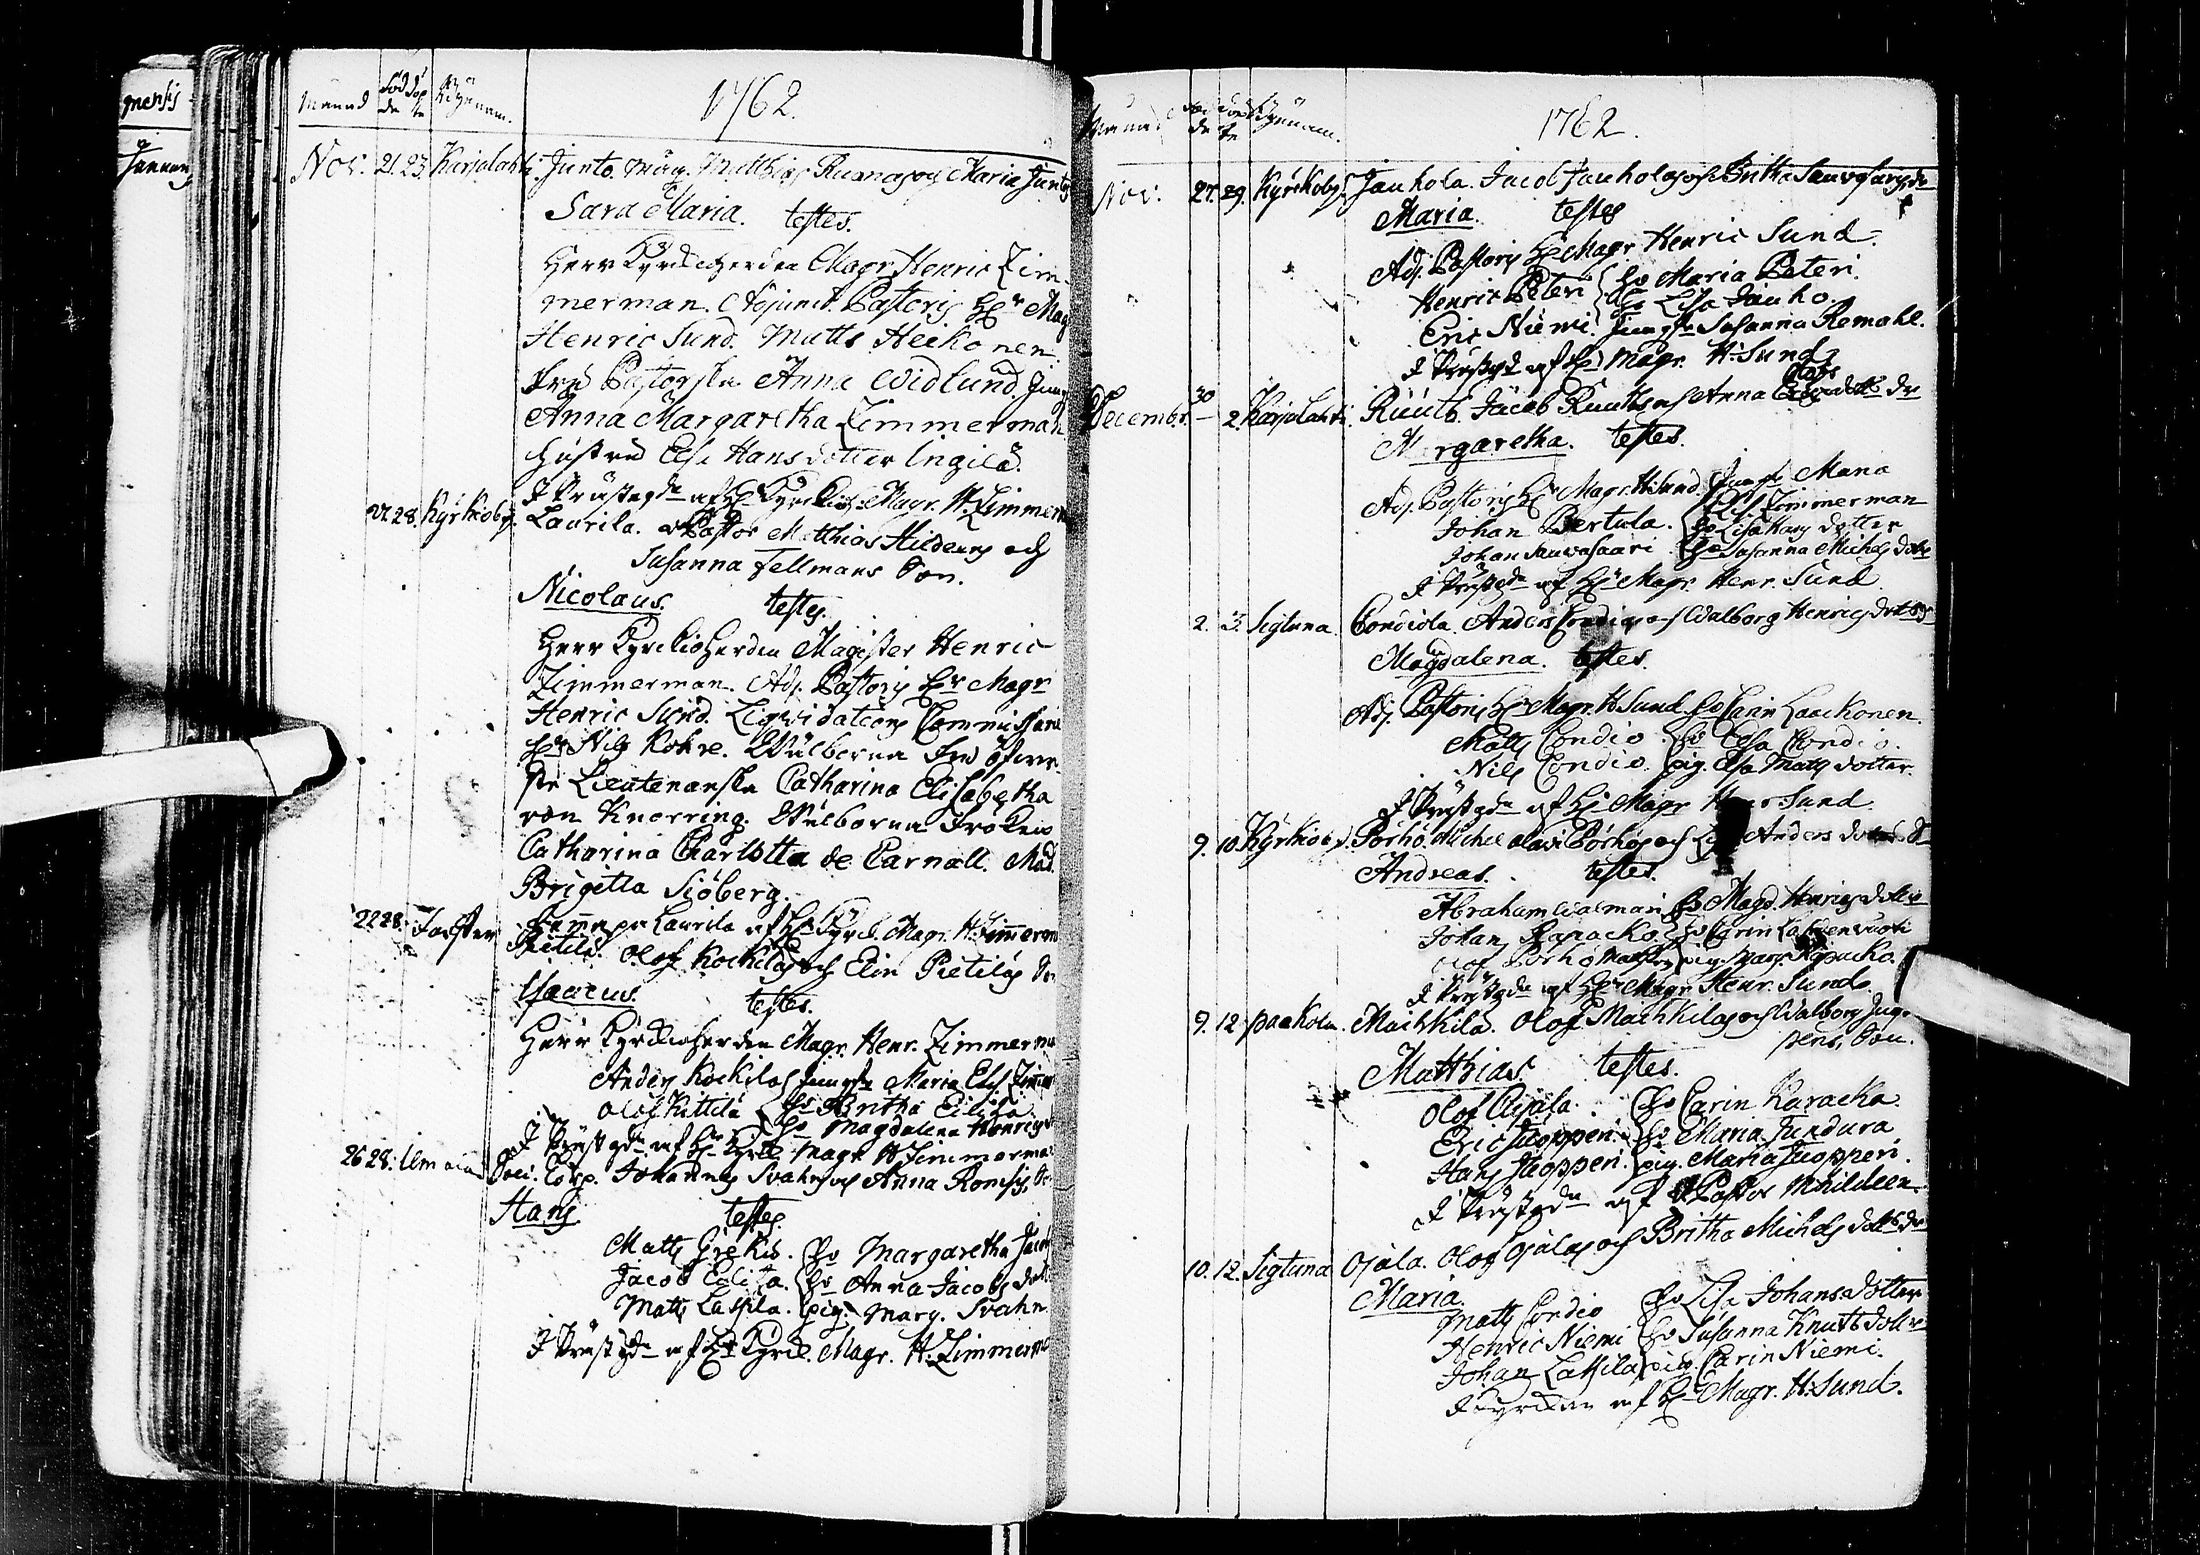 mensis
Januar
Månad Föd de Döp te Byenam.
1762.
Nov. 21. 23. Karjalahti. Junto. Måg. Matthias Ruonas och Maria Juntos
Sara Maria. testes.
Herr Kyrckioherden Magr Henric Zim-
merman. Adjunct. Pastoris Hr Mag
Henric Sund. Matts Heikonen
Fru Pastorskan Anna Widlund. Jung
Anna Margaretha Zimmerman
hustru Elsa Hansdotter Ingilä.
I Prästgdn af Hr Kyrckioh. Magr. H. Zimmerm
28. Kyrkioby. Laurila. Pastor Matthias Hildeens och
Susanna Fellmans Son.
Nicolaus. testes.
Herr Kyrckioherden Magister Henric
Zimmerman. Adj. Pastoris Hr Magr
Henric Sund. Liqvidations Commissarie
Hr Nils Kohre. Wälborna Fru Öfwer-
ste Lieutenanskan Catharina Elisabetha
von Knorring. Wälborna Fröken
Catharina Charlotta de Carnall. Mad.
Brigetta Siöberg.
Hemma på Laurila af Hr Kyrck. Magr. H. Zimmerm
22 28. Pietilä. Olof Kockilas och Elin Pietiläs So
Isaacus. testes.
Herr Kyrckioherden Magr. Henr. Zimmerma
Anders Kockila Jungfr Maria Elis Zimm
Olof Kittilä Ho Britha Eilila
Ho Magdalena Henrics
I Prästgdn af Hr Kyrck. Magr H Zimmerma
26 28. Corp. Johannes Svahns och Anna Romsis, So
Hans testes
Matts Grekus. Ho Margaretha Jacobs
Jacob Ho Anna Jacobs dott
Matts Lassila. pig. Marg. Svahn.
I Prästgdn af Hr Kyrck. Magr. H. Zimmerma
Månad Föd de Döp te Byenam.
1762.
Nov. 27. 29. Kyrkoby. Jauhola. Jacob Jauholas och Britha Sauvosaaris, dr
Maria. testes
Adj. Pastoris Hr Magr Henric Sund.
Henric Peteri Ho Maria Peteri.
Eric Niemi. Ho Lisa Jauho.
Jungfr Susanna Remahl.
I Prästgdn af Hr Magr. H. Sund
Decembr. 30 2. Karjalahti. Ruuth. Jacob Ruuths och Anna dr
Margaretha. testes.
Adj. Pastoris Hr Magr. H. Sund. Jungfr Maria
Elis. Zimmerman
Johan Bertula. Ho Lisa Hans dotter
Johan Sauvosaari Ho Susanna Michels dotter
I Prästgdn af Hr Magr Henr. Sund
2. 3. Sigtuna. Condiola. Anders Condios och Walborg Henrics dotter
Magdalena. testes.
Adj. Pastoris Hr Magr. H Sund Ho Carin Laackonen.
Matts Condio. Ho Elsa Condio.
Nils Condio. pig. Elsa Matts dotter.
I Prästgdn af Hr Magr Henr Sund
9. 10. Kyrkioby. Pörhö. Michel Pörhös och Anders dotter
Andreas. testes.
Abraham Walmari Ho Magd. Henrics dotter
Johan Rapacko Ho Carin
Olof Pörhö pig. Marg. Rapacko.
I Prästgdn af Hr Magr Henr. Sund.
9. 12 paakola. Machkila. Olof Machkilas och Walborg
Son.
Matthias testes.
Olof Ho Carin Karacka.
Eric Huopperi. Ho Maria Jundura
Hans Huopperi. pig. Maria Huopperi.
I Prästgdn af Pastor M Hildeen.
10. 12. Sigtuna Ojala. Olof Ojalas och Britha Michels dotters dr
Maria.
Matts Condio Ho Lisa Johans dotter
Henric Niemi Ho Susanna Knuts dotter
Johan Lassila pig. Carin Niemi.
I Kyrckan af Hr Magr. H. Sund.